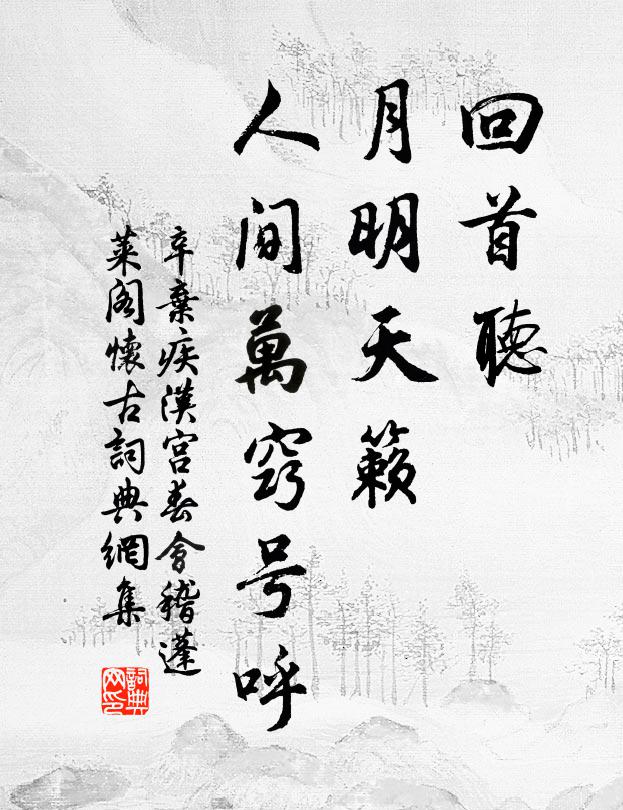 回首聽
月明天籟
人間萬竅号呼
辛棄疾漢宮春會稽蓬
萊閣懷古詞典網集
詞典
网印